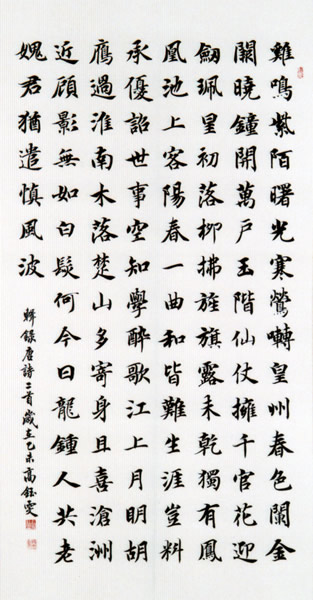 雞鳴紫陌曙光寒鶯囀皇州春色闌金
闕曉鐘開萬戶玉階仙仗擁千官花迎
劒珮星初落柳拂旌旗露未乾獨有鳳
凰池上客陽春一曲和皆難生涯豈料
承優詔世事空知學醉歌江上月明胡
鴈過淮南木落楚山多寄身且喜滄洲
近顧影無如白髮何今日龍鍾人共老
媿君猶遣慎風波
輯錄唐詩二首歲在乙未高鈺雯